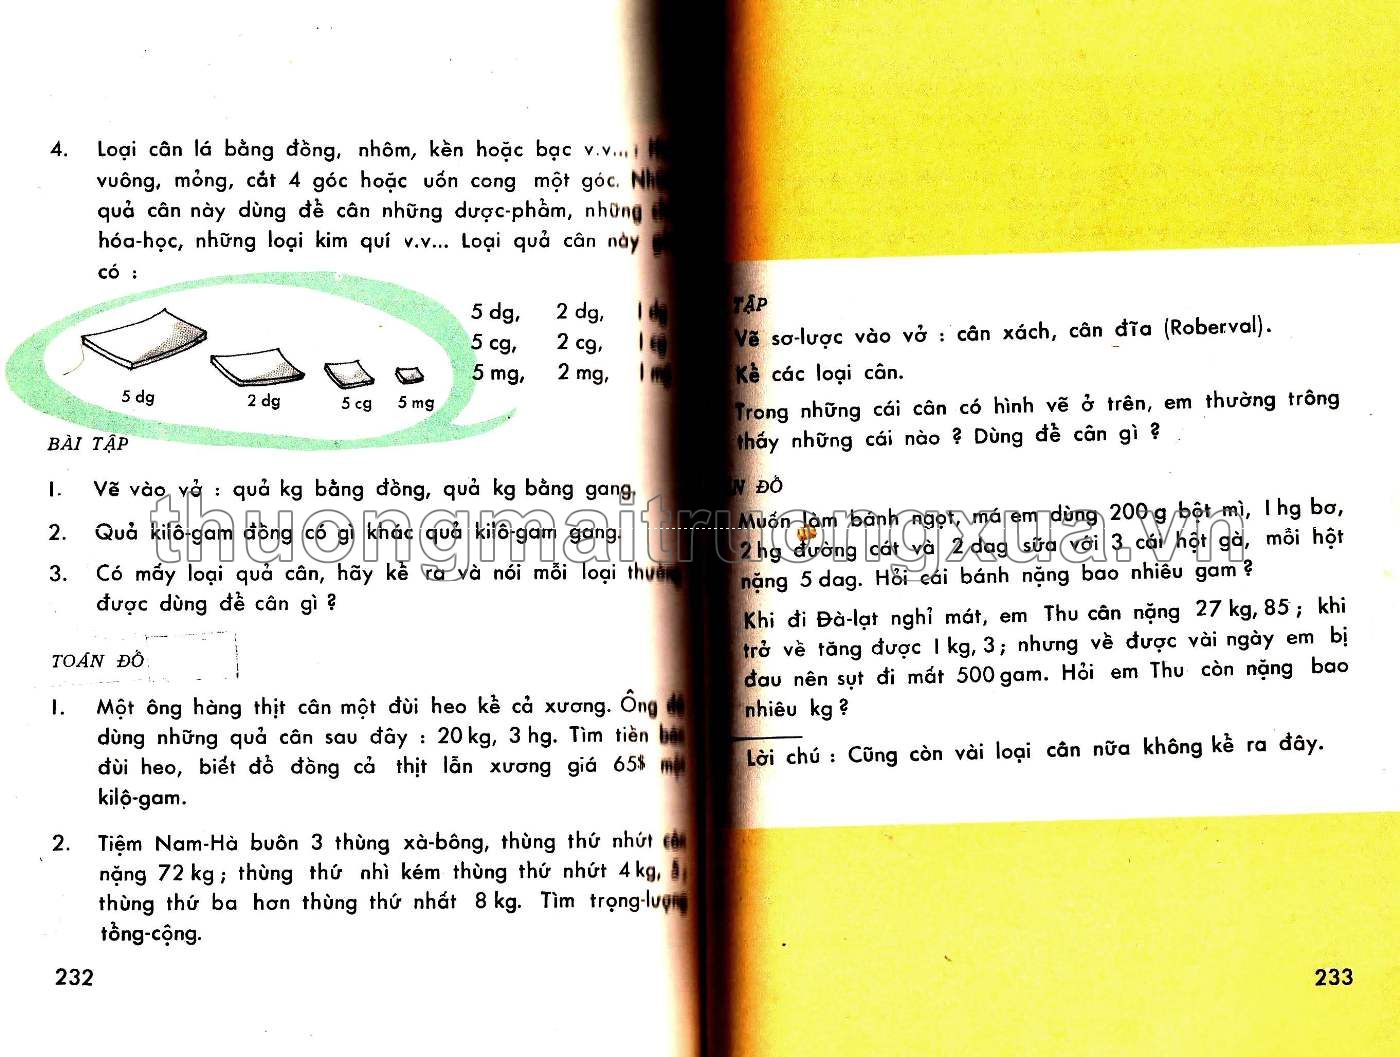 4. Loại cân lá bằng đồng, nhôm, kền hoặc bạc v.v...
vuông, mỏng, cắt 4 góc hoặc uốn cong một góc.
quả cân này dùng để cân những dược-phẩm, những
hóa-học, những loại kim quí v.v... Loại quả cân này
có :
5 dg, 2 dg, 1 dg
5 cg, 2 cg, 1 cg
5 mg, 2 mg, 1 mg
5 dg 2 dg 5 cg 5 mg
BÀI TẬP
1. Vẽ vào vở : quả kg bằng đồng, quả kg bằng gang.
2. Quả kilô-gam đồng có gì khác quả kilô-gam gang.
3. Có mấy loại quả cân, hãy kể ra và nói mỗi loại thường
được dùng để cân gì ?
TOÁN ĐỐ
1. Một ông hàng thịt cân một đùi heo kể cả xương. Ông
dùng những quả cân sau đây : 20 kg, 3 hg. Tìm tiền
đùi heo, biết đổ đồng cả thịt lẫn xương giá 65$ một
kilô-gam.
2. Tiệm Nam-Hà buôn 3 thùng xà-bông, thùng thứ nhứt cân
nặng 72 kg ; thùng thứ nhì kém thùng thứ nhứt 4 kg,
thùng thứ ba hơn thùng thứ nhất 8 kg. Tìm trọng-lượng
tổng-cộng.
232
TẬP
Vẽ sơ-lược vào vở : cân xách, cân đĩa (Roberval).
Kể các loại cân.
Trong những cái cân có hình vẽ ở trên, em thường trông
thấy những cái nào ? Dùng để cân gì ?
N ĐỐ
Muốn làm bánh ngọt, má em dùng 200 g bột mì, 1 hg bơ,
2 hg đường cát và 2 dag sữa với 3 cái hột gà, mỗi hột
nặng 5 dag. Hỏi cái bánh nặng bao nhiêu gam ?
Khi đi Đà-lạt nghỉ mát, em Thu cân nặng 27 kg, 85 ; khi
trở về tăng được 1 kg, 3 ; nhưng về được vài ngày em bị
đau nên sụt đi mất 500 gam. Hỏi em Thu còn nặng bao
nhiêu kg ?
Lời chú : Cũng còn vài loại cân nữa không kể ra đây.
233
thuongmaitruongxua.vn